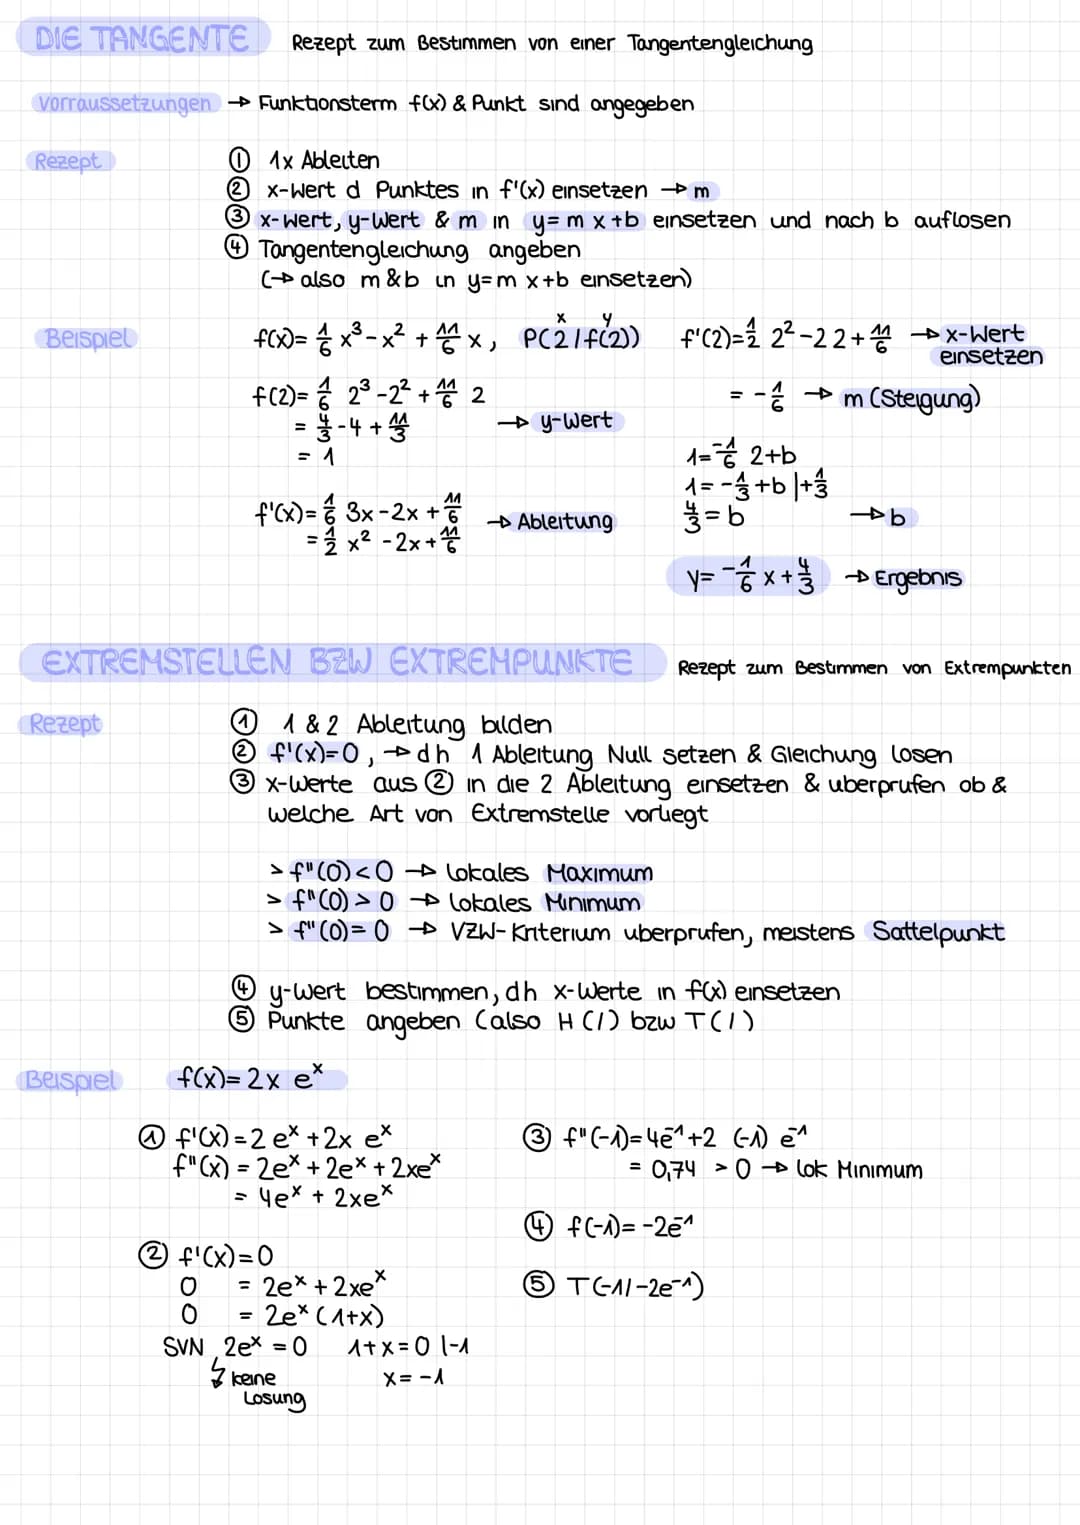 DIE TANGENTE Rezept zum Bestimmen von einer Tangentengleichung
Vorraussetzungen → Funktionsterm f(x) & Punkt sind angegeben
Rezept
① 1x Ableiten
② x-Wert d Punktes in f'(x) einsetzen → m
③ x-Wert, y-Wert & m in y= m x +b einsetzen und nach b auflosen
④ Tangentengleichung angeben
(→ also m & b in y=m x+b einsetzen)
Beispiel
x y
f(x)= 1/6 x³ - x² + 11/6 x, P(2/f(2))
f(2)= 1/6 2³ -2² + 11/6 2
= 4/3 -4 + 11/3 → y-Wert
= 1
f'(x)= 1/6 3x -2x + 11/6 → Ableitung
= 1/2 x² -2x + 11/6
f'(2)= 1/2 2² -2 2 + 11/6 → x-Wert einsetzen
= -1/6 → m (Steigung)
1= -1/6 2+b
1= -1/3 +b |+1/3
4/3 = b → b
y= -1/6 x + 4/3 → Ergebnis
EXTREMSTELLEN BZW EXTREMPUNKTE Rezept zum Bestimmen von Extrempunkten
Rezept
① 1 & 2 Ableitung bilden
② f'(x)=0, → dh 1 Ableitung Null setzen & Gleichung losen
③ x-Werte aus ② in die 2 Ableitung einsetzen & uberprufen ob &
welche Art von Extremstelle vorliegt
> f"(0) < 0 → lokales Maximum
> f"(0) > 0 → lokales Minimum
> f"(0) = 0 → VZW-Kriterium uberprufen, meistens Sattelpunkt
④ y-Wert bestimmen, dh x-Werte in f(x) einsetzen
⑤ Punkte angeben (also H (/) bzw T (/)
Beispiel f(x)= 2x eˣ
① f'(x) = 2 eˣ + 2x eˣ
f"(x) = 2eˣ + 2eˣ + 2xeˣ
= 4eˣ + 2xeˣ
② f'(x)=0
0 = 2eˣ + 2xeˣ
0 = 2eˣ (1+x)
SVN, 2eˣ = 0 1+x = 0 |-1
↯ keine x = -1
Losung
③ f"(-1)= 4e⁻¹ +2 (-1) e⁻¹
= 0,74 > 0 → lok Minimum
④ f(-1)= -2e⁻¹
⑤ T(-1/-2e⁻¹)